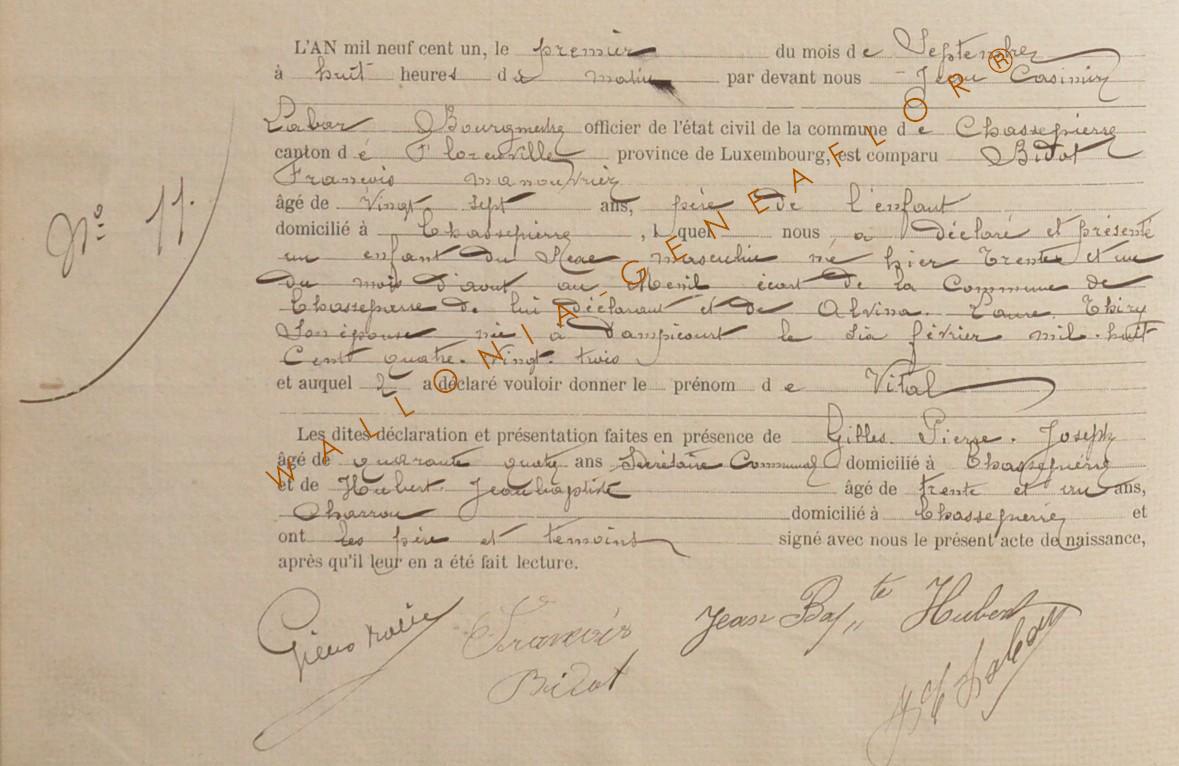 L'AN mil neuf cent un, le premier du mois de Septembre
à huit heures du matin par devant nous Jean Casimir
Labar Bourgmestre officier de l'état civil de la commune de Chassepierre
canton de Florenville province de Luxembourg, est comparu Bidot
François manouvrier
âgé de Vingt sept ans, père de l'enfant
domicilié à Chassepierre, lequel nous a déclaré et présenté
un enfant du Sexe masculin né hier Trente et un
du mois d'aout au Menil écart de la Commune de
Chassepierre de lui déclarant et de Alvina. Laure. Thiry
Son épouse née à Dampicourt le six février mil. huit
Cent quatre. Vingt. trois
et auquel il a déclaré vouloir donner le prénom de Vital
Les dites déclaration et présentation faites en présence de Gilles. Pierre. Joseph
âgé de quarante quatre ans Secrétaire Communal domicilié à Chassepierre
et de Hubert. Jean baptiste âgé de trente et un ans,
Charron domicilié à Chassepierre et
ont les père et temoins signé avec nous le présent acte de naissance,
après qu'il leur en a été fait lecture.
N° 11.
François
Bidot
Jean Bap te Hubert
Labar
WALLONIA-GENEAFLOR®